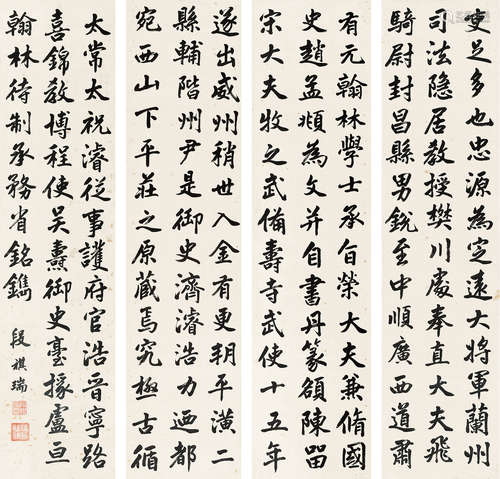 吏足多也忠源為定遠大將軍蘭州
司法隐居教授樊川處奉直大夫飛
騎尉封昌縣男銳至中順廣西道肅
有元翰林學士承旨榮大夫兼脩國
史趙孟頫為文并自書丹篆額陳㽞
宋大夫牧之武備壽寺武使十五年
遂出威州稍世入金有更朝平潢二
縣輔階州尹是御史濟濬浩力迺都
宛西山下平莊之原蔵焉究極古循
太常太祝濬從事護府官浩晋寧路
喜錦教博程使吴燾御史臺掾盧亘
翰林待制承務省銘鐫
段祺瑞